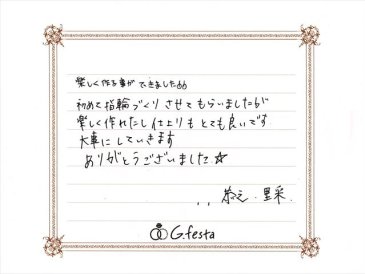 楽しく作る事ができました
初めて指輪づくりさせてもらいましたが
楽しく作れたし仕上りもとても良いです
大事にしていきます
ありがとうございました☆
里采
G.festa